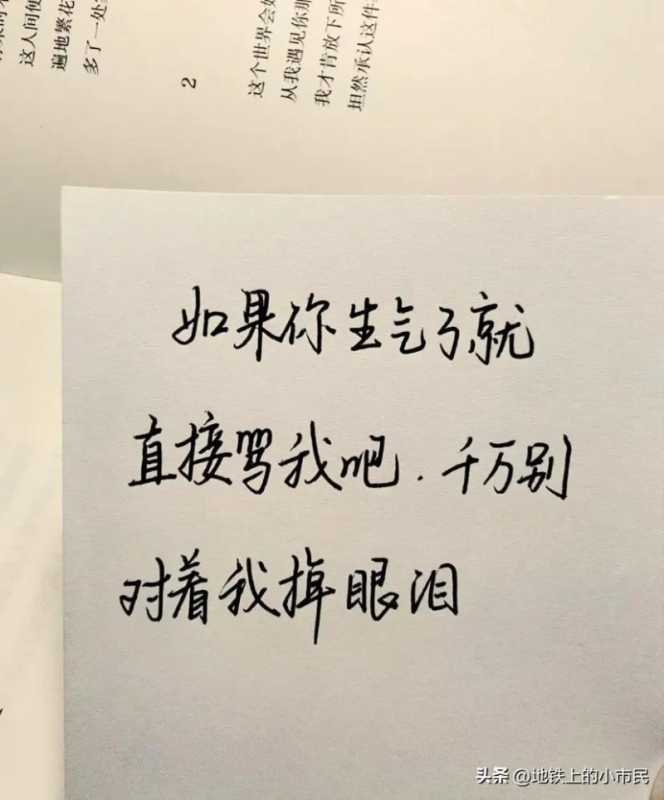 这人间便
遍地繁花
多了一处
2
这个世界会
从我遇见你那
我才肯放下所
坦然承认这件
如果你生气了就
直接骂我吧．千万别
对着我掉眼泪
头条 @地铁上的小市民